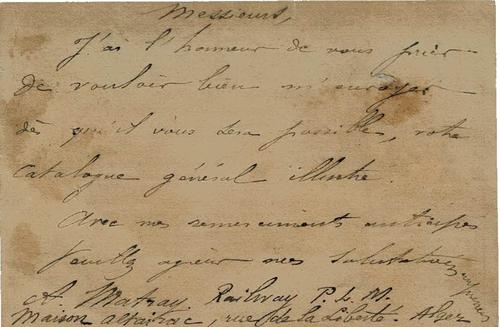 Messieurs,
J'ai l'honneur de vous prier
de vouloir bien m'envoyer
dès qu'il vous sera possible, votre
catalogue général illustré.
Avec mes remerciements anticipés
Veuillez agréer mes salutations
A. Matray. Railway P. L. M.
Maison, rue de la Liberté. Alger